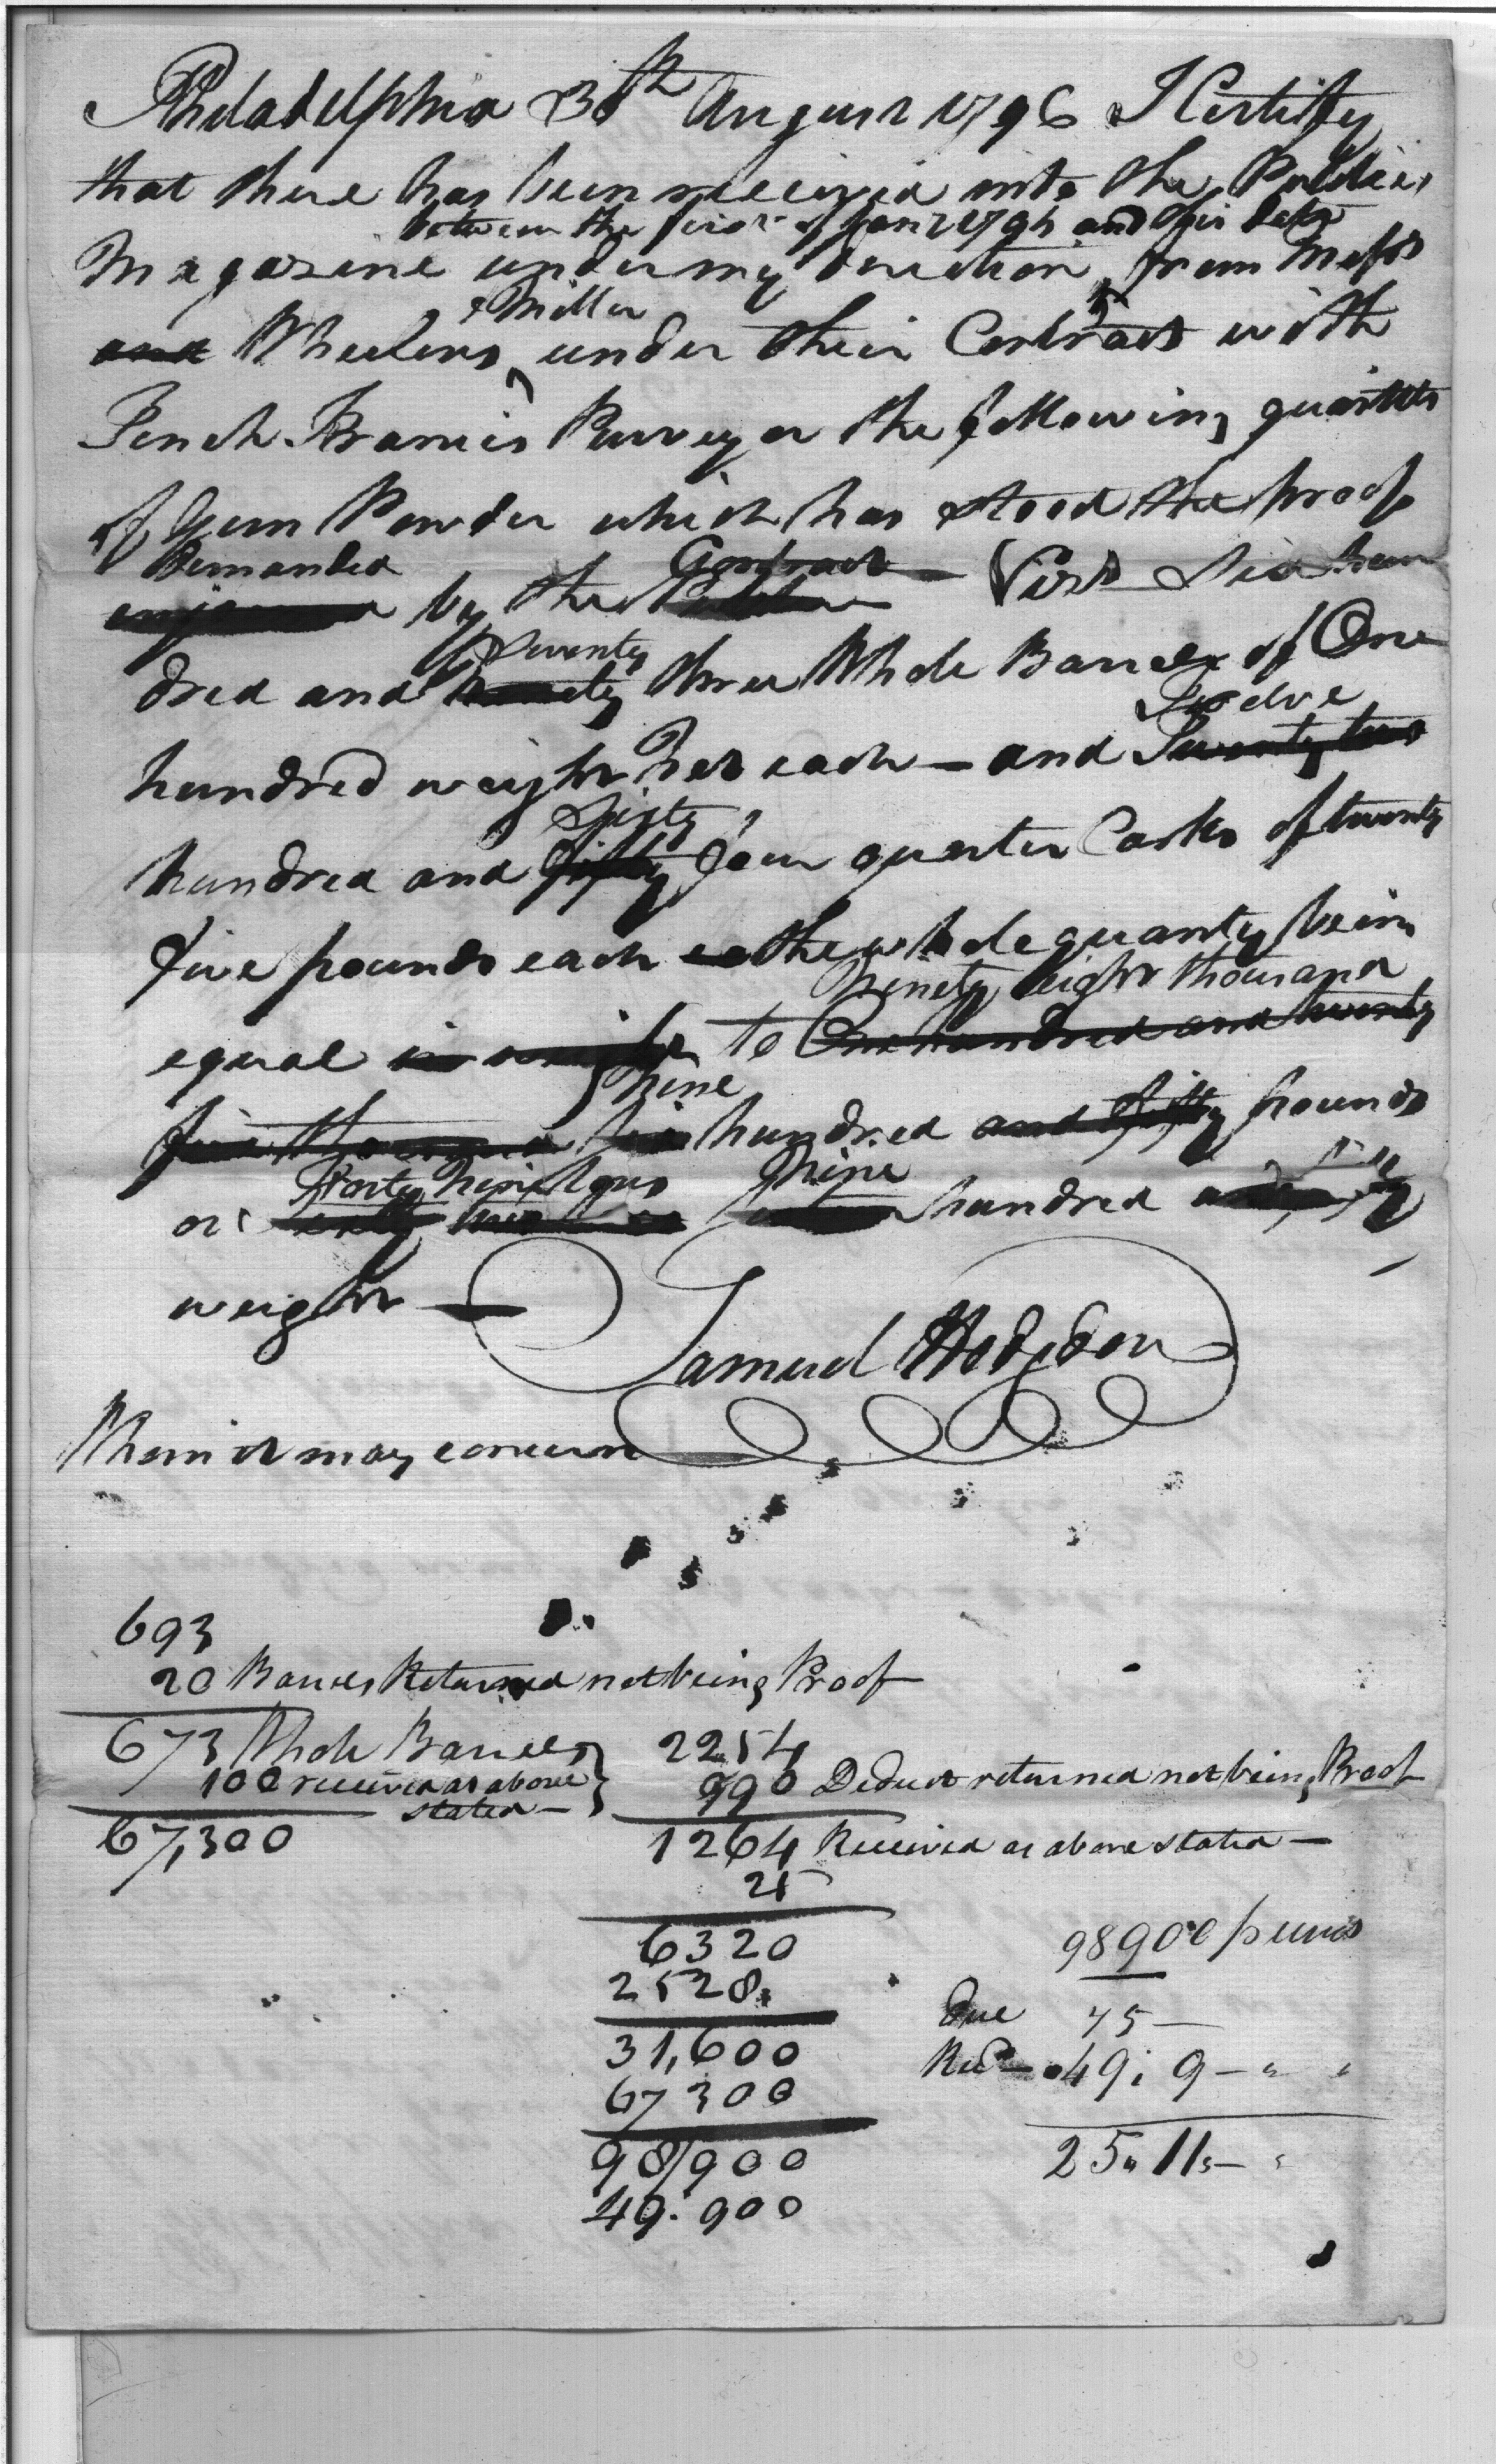 Philadelphia 30th August 1796 I Certify
that there has been received into the Public
between the first of Jany 1794 and this date
Magazine under my direction from Messrs
& Miller
and Wheelens under their Contract with
Tench Francis Purveyor the following quantities
of Gun Powder which has stood the proof
demanded Contract
by the — Vizt Six hun
Seventy
dred and ninety three Whole Barrels of One
Twelve
hundred weight Net each — and Twenty two
Sixty
hundred and fifty four quarter Casks of twenty
five pounds each the whole quanty being
Ninety eight thousand
equal in weight to One hundred and twenty
Nine
five thousand six hundred and fifty pounds
Forty Nine tons Nine
or sixty two hundred
weight —
Samuel Hodgdon
Whom it may concern
693
20 Barrels Returned not being Proof
673 Whole Barrels
100 received as above
stated —
67,300
2254
990 Deduct returned not being Proof
1264 Received as above stated —
25
6320
2528
31,600
67300
98,900
49.900
98900 pounds
due 75 —
Recd — 49 . 9 —
25 " 11 —